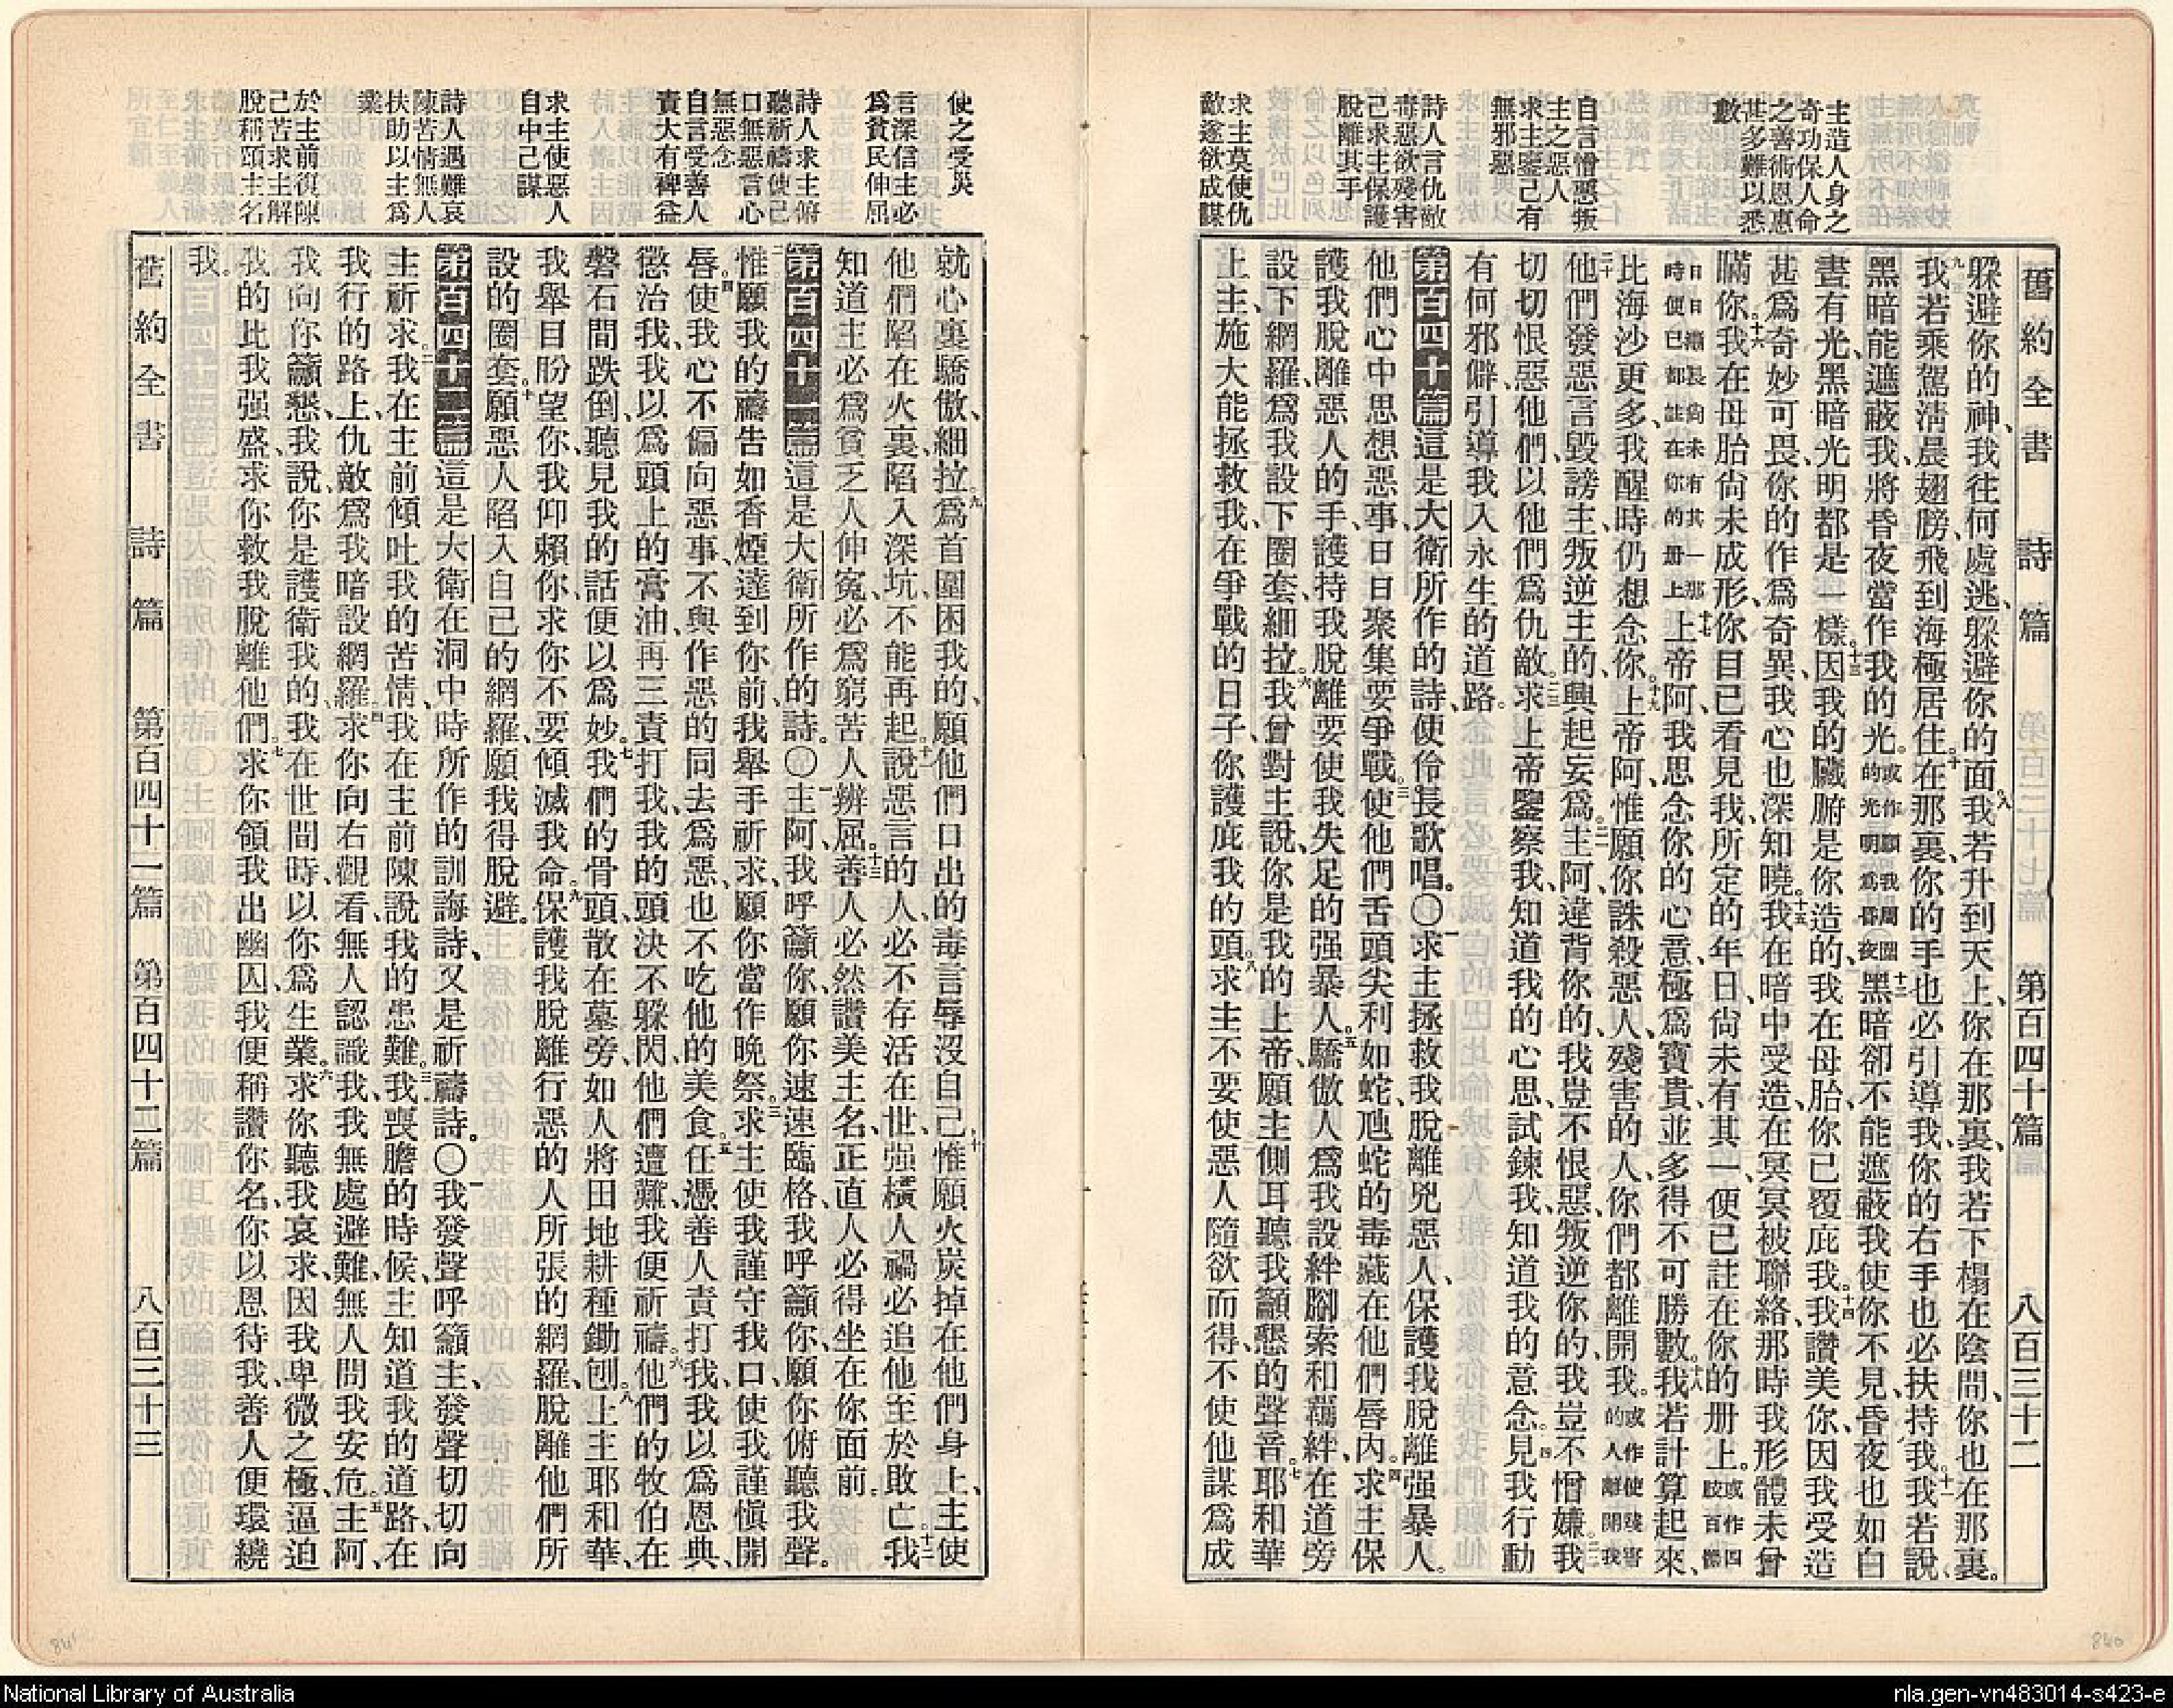 舊約全書 詩篇 第百四十篇 八百三十二
主造人身之
奇功保人命
之善術恩惠
甚多難以悉
數
自言憎惡叛
主之惡人
求主鑒己有
無邪惡
詩人言仇敵
毒惡欲殘害
己求主保護
脫離其手
求主莫使仇
敵遂欲成謀
躱避你的神、我往何處逃、躱避你的面。八我若升到天上、你在那裏、我若下榻在陰間、你也在那裏。
九我若乘駕淸晨翅膀、飛到海極居住。十在那裏、你的手也必引導我、你的右手也必扶持我。十一我若說、
黑暗能遮蔽我、將昏夜當作我的光。或作願我周圍的光明爲昏夜十二黑暗卻不能遮蔽我、使你不見、昏夜也如白
晝有光、黑暗光明都是一樣。十三因我的臟腑是你造的、我在母胎、你已覆庇我。十四我讚美你、因我受造
甚爲奇妙可畏、你的作爲奇異、我心也深知曉。十五我在暗中受造、在冥冥被聯絡、那時我形體未曾
瞞你。十六我在母胎尙未成形、你目已看見我、所定的年日、尙未有其一、便已註在你的册上。或作四肢百體
日日漸長尙未有其一那時便已都註在你的册上十七上帝阿、我思念你的心意、極爲寶貴、並多得不可勝數。十八我若計算起來、
比海沙更多、我醒時仍想念你。十九上帝阿、惟願你誅殺惡人、殘害的人、你們都離開我。或作使殘害的人離開我
二十他們發惡言毀謗主、叛逆主的、興起妄爲。二一主阿、違背你的、我豈不恨惡、叛逆你的、我豈不憎嫌。二二我
切切恨惡他們、以他們爲仇敵。二三求上帝鑒察我、知道我的心思、試鍊我、知道我的意念。二四見我行動
有何邪僻、引導我入永生的道路。
第百四十篇 這是大衛所作的詩、使伶長歌唱。〇一求主拯救我脫離兇惡人、保護我脫離强暴人。
二他們心中思想惡事、日日聚集要爭戰。三使他們舌頭尖利如蛇、虺蛇的毒藏在他們唇內。四求主保
護我脫離惡人的手、護持我脫離要使我失足的强暴人。五驕傲人爲我設絆腳索和羈絆、在道旁
設下網羅、爲我設下圈套、細拉。六我曾對主說、你是我的上帝、願主側耳聽我籲懇的聲音。七耶和華
上主、施大能拯救我、在爭戰的日子、你護庇我的頭。八求主不要使惡人隨欲而得、不使他謀爲成
使之受災
言深信主必
爲貧民伸屈
詩人求主俯
聽祈禱使己
口無惡言心
無惡念
自言受善人
責大有裨益
求主使惡人
自中己謀
詩人遇難哀
陳苦情無人
扶助以主爲
業
於主前復陳
己苦求主解
脫稱頌主名
就心裏驕傲、細拉。九爲首圍困我的、願他們口出的毒言辱沒自己。十惟願火炭掉在他們身上、主使
他們陷在火裏、陷入深坑、不能再起。十一說惡言的人、必不存活在世、强橫人禍必追他至於敗亡。十二我
知道主必爲貧乏人伸寃、必爲窮苦人辨屈。十三善人必然讚美主名、正直人必得坐在你面前。
第百四十一篇 這是大衛所作的詩。〇一主阿、我呼籲你、願你速速臨格、我呼籲你、願你俯聽我聲。
二惟願我的禱告如香煙達到你前、我舉手祈求、願你當作晚祭。三求主使我謹守我口、使我謹愼開
唇。四使我心不偏向惡事、不與作惡的同去爲惡、也不吃他的美食。五任憑善人責打我、我以爲恩典、
懲治我、我以爲頭上的膏油、再三責打我、我的頭決不躱閃、他們遭難、我便祈禱。六他們的牧伯在
磐石間跌倒、聽見我的話便以爲妙。七我們的骨頭、散在墓旁、如人將田地耕種鋤刨。八上主耶和華、
我舉目盼望你、我仰賴你、求你不要傾滅我命。九保護我脫離行惡的人所張的網羅、脫離他們所
設的圈套。十願惡人陷入自己的網羅、願我得脫避。
第百四十二篇 這是大衛在洞中時所作的訓誨詩、又是祈禱詩。〇一我發聲呼籲主、發聲切切向
主祈求。二我在主前傾吐我的苦情、我在主前陳說我的患難。三我喪膽的時候、主知道我的道路、在
我行的路上、仇敵爲我暗設網羅。四求你向右觀看、無人認識我、我無處避難、無人問我安危。五主阿、
我向你籲懇、我說、你是護衛我的、我在世間時、以你爲生業。六求你聽我哀求、因我卑微之極、逼迫
我的比我强盛、求你救我脫離他們。七求你領我出幽囚、我便稱讚你名、你以恩待我、善人便環繞
我。
舊約全書 詩篇 第百四十一篇 第百四十二篇 八百三十三
841
840
National Library of Australia
nla.gen-vn483014-s423-e